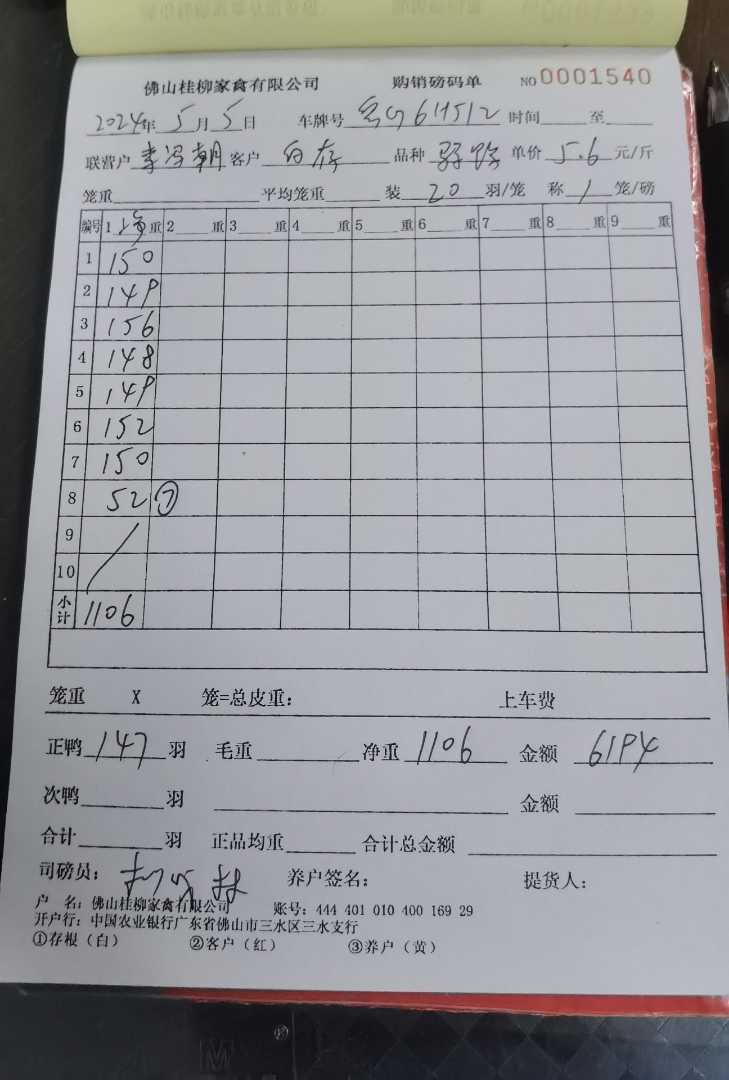 佛山桂柳家禽有限公司 购销磅码单 NO 0001540
2024年 5月5日 车牌号 G61H512 时间 至
联营户 李 朝 客户 白存 品种 单价 5.6 元/斤
笼重 平均笼重 装 20 羽/笼 称 1 笼/磅
编号 1 重 2 重 3 重 4 重 5 重 6 重 7 重 8 重 9 重
1 150
2 149
3 156
4 148
5 149
6 152
7 150
8 52 ⑦
9
10
小计 1106
笼重 X 笼=总皮重: 上车费
正鸭 147 羽 毛重 净重 1106 金额 6194
次鸭 羽 金额
合计 羽 正品均重 合计总金额
司磅员: 养户签名: 提货人:
户 名: 佛山桂柳家禽有限公司 账号: 444 401 010 400 169 29
开户行: 中国农业银行广东省佛山市三水区三水支行
①存根（白） ②客户（红） ③养户（黄）